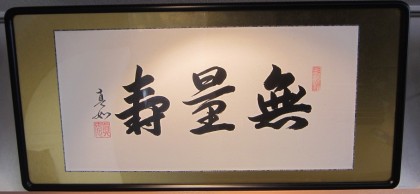 無量寿
真如